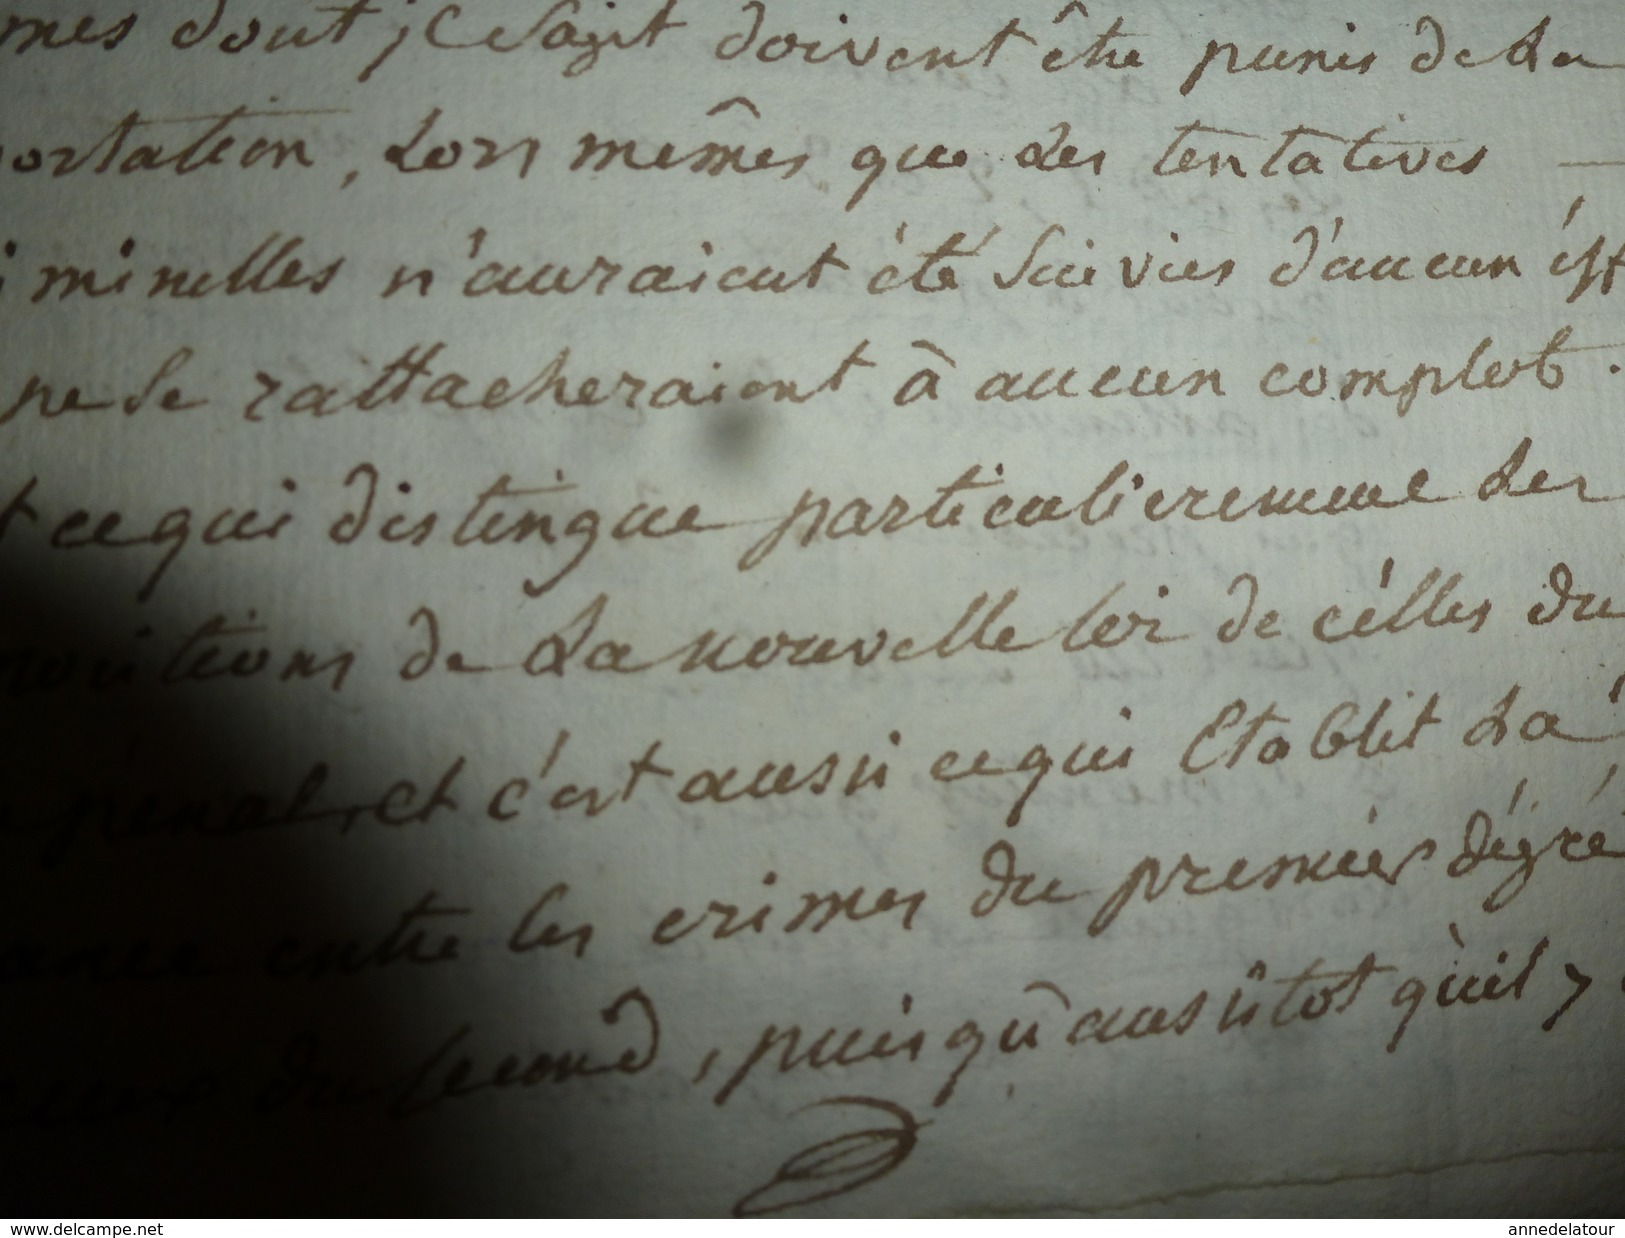 mes dont il s'agit doivent être punis de la
ortation, Lors mêmes que des tentatives
iminelles n'auraient été Suivies d'aucun éff
ne Se rattacheraient à aucun complot.
t ce qui distingue particulierement les
ositions de La nouvelle loi de célles du
pénal, et c'est aussi ce qui Etablit La
ance entre les crimes du premier dégré
ceux du Second, puis qu'aussitôt qu'il y
www.delcampe.net annedelatour